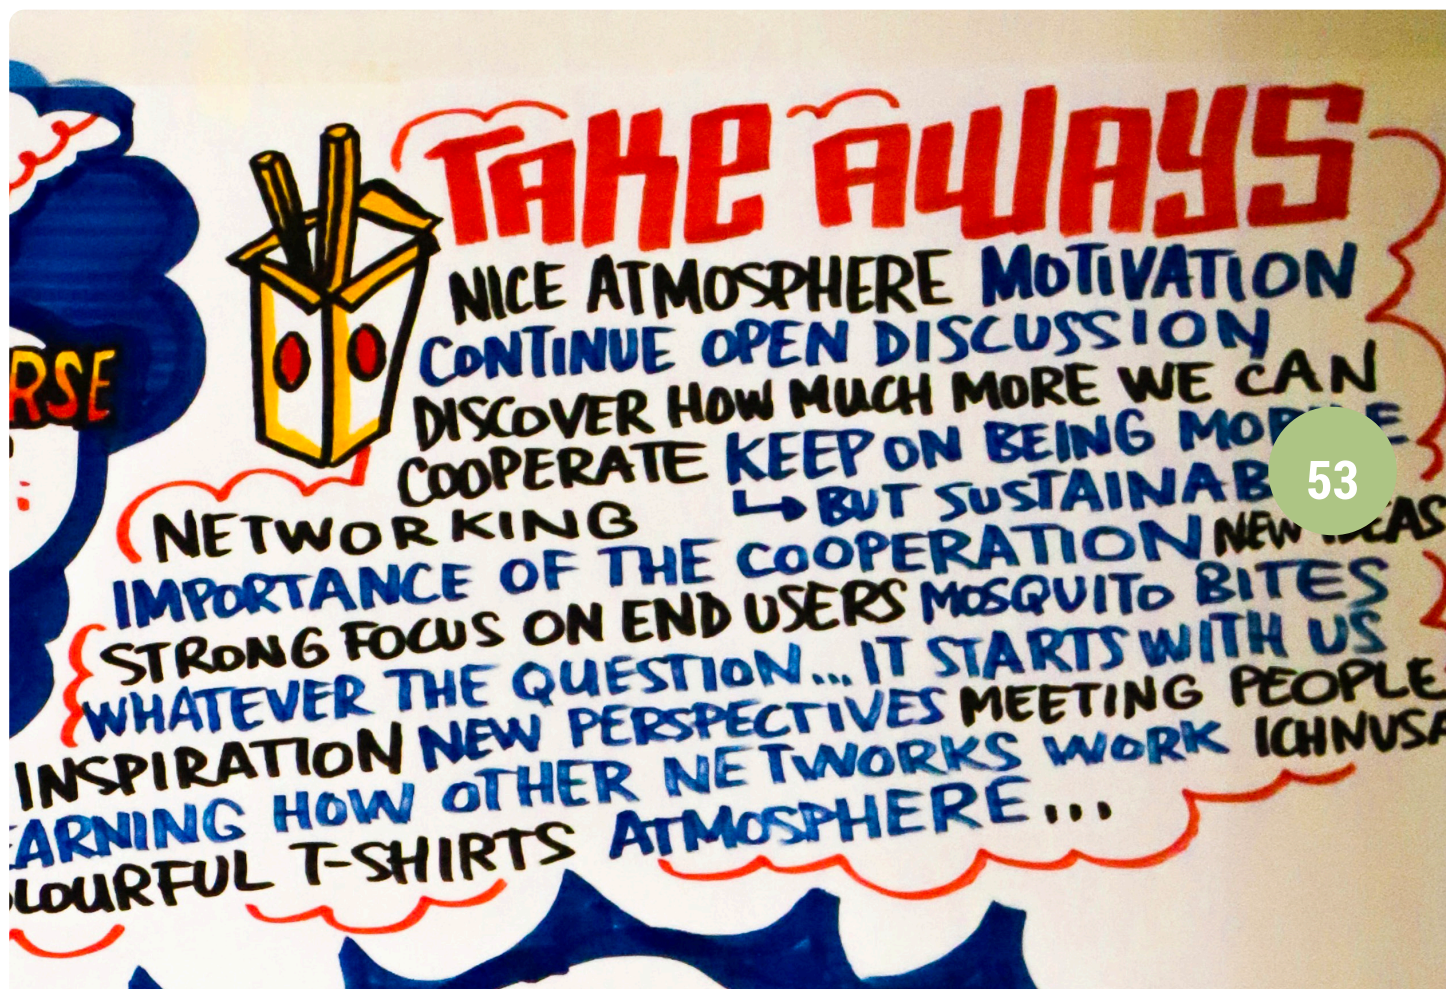 TAKE AWAYS
NICE ATMOSPHERE MOTIVATION
CONTINUE OPEN DISCUSSION
DISCOVER HOW MUCH MORE WE CAN
COOPERATE KEEP ON BEING
BUT
53
NETWORKING
IMPORTANCE OF THE COOPERATION NEW
STRONG FOCUS ON END USERS MOSQUITO BITES
WHATEVER THE QUESTION... IT STARTS WITH US
INSPIRATION NEW PERSPECTIVES MEETING PEOPLE
ARNING HOW OTHER NETWORKS WORK ICHNUSA
LOURFUL T-SHIRTS ATMOSPHERE...
RSE